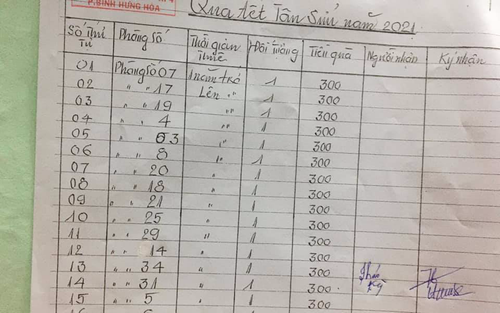 P.BÌNH HƯNG HÒA
Quà tết Tân Sửu năm 2021
Số Thứ Tự Phòng Số Thời gian Thuê Đối tượng Tiền quà Người nhận Ký nhận
01 Phòng Số 07 1 năm trở 1 300
02 " " 17 Lên " 1 300
03 " " 19 " 1 300
04 " " 4 " 1 300
05 " " 63 " 1 300
06 " " 8 " 1 300
07 " " 20 " 1 300
08 " " 18 " 1 300
09 " " 21 " 1 300
10 " " 25 " 1 300
11 " " 29 " 1 300
12 " " 14 " 1 300
13 " " 34 " 1 300
14 " " 31 " 1 300
15 " " 5 " 1 300